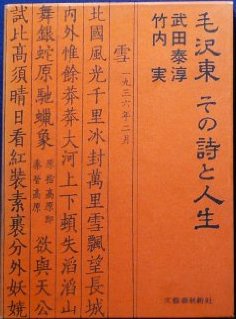 毛沢東 その詩と人生
武田泰淳
竹内 実
雪 一九三六年二月
北國風光千里冰封萬里雪飄望長城
内外惟餘莽莽大河上下頓失滔滔山
舞銀蛇原馳蠟象 原指高原即秦晉高原 欲與天公
試比高須晴日看紅裝素裹分外妖嬈
文藝春秋新社